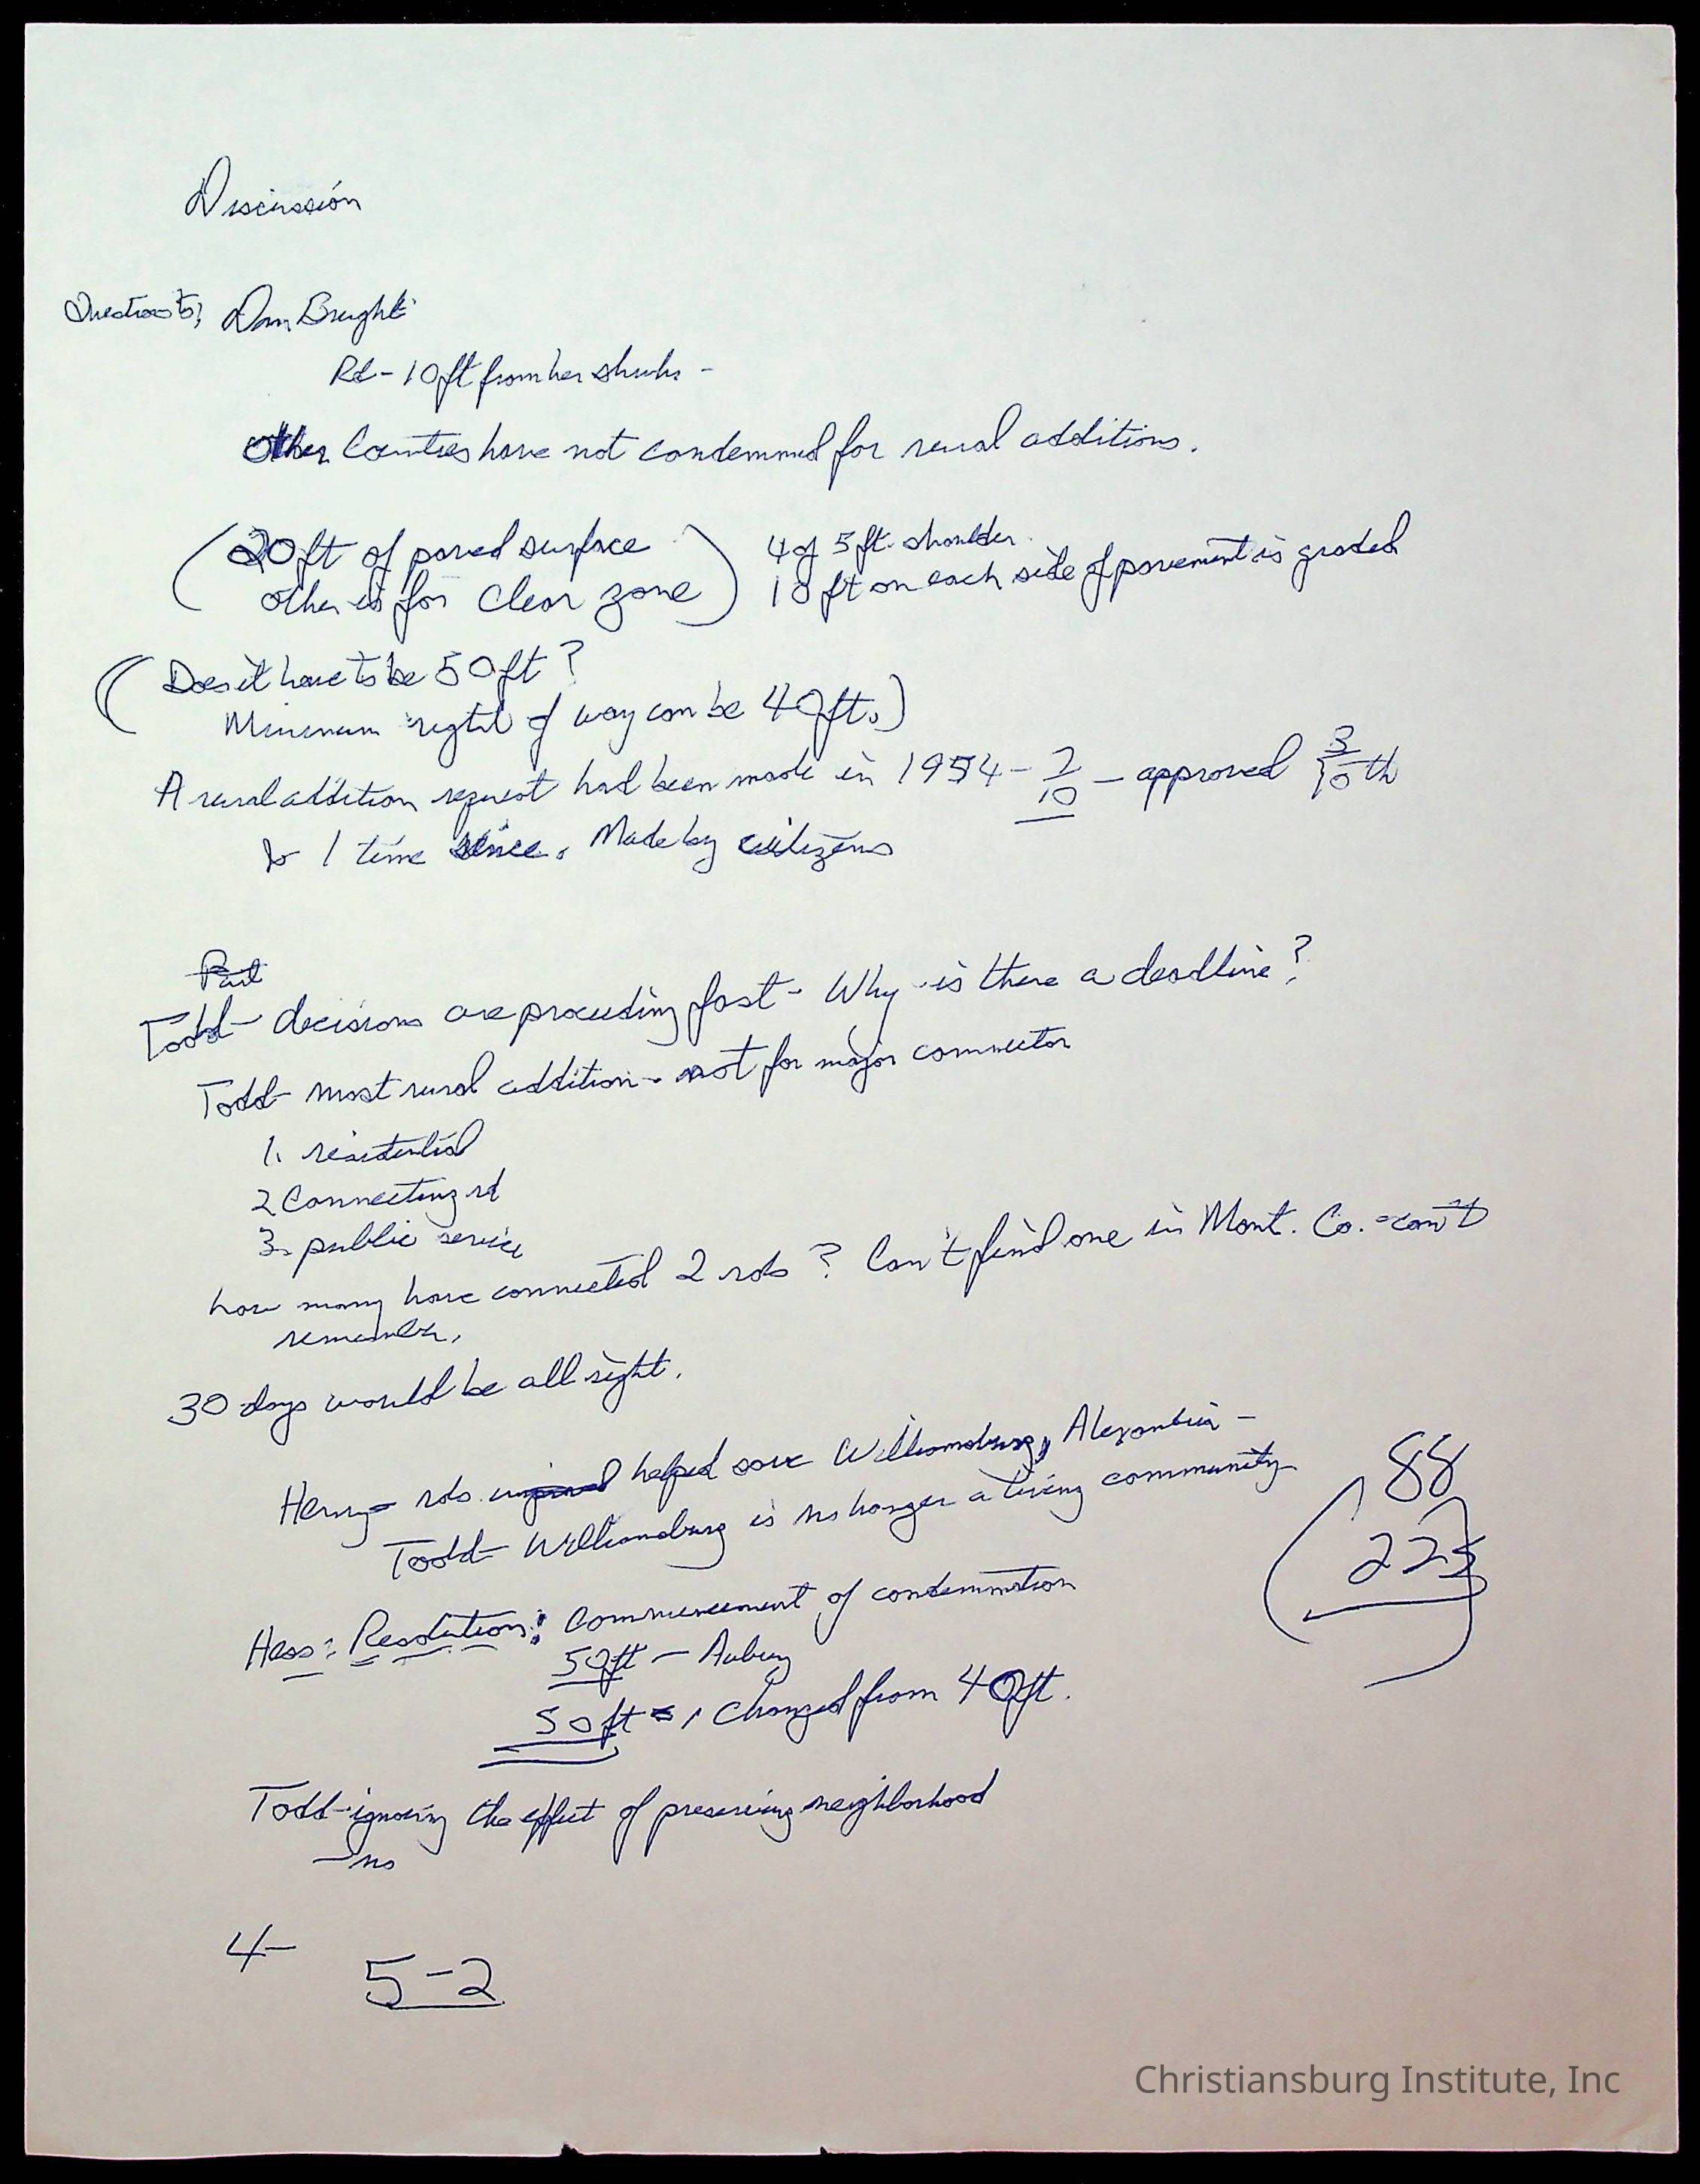 Discussion
Questions to; Dan Brugh
Rd - 10ft from her shrubs -
Other Counties have not condemned for rural additions.
(20ft of paved surface
other is for clear zone)
4 of 5 ft. shoulder
10 ft on each side of pavement is graded
(Does it have to be 50 ft?
Minimum right of way can be 40ft.)
A rural addition request had been made in 1954 - 7/10 - approved 3/10 th
1 time since. Made by citizens
Part
Todd - decisions are proceeding fast - Why is there a deadline?
Todd - most rural addition - not for major connector
1. residential
2 Connecting rd
3. public service
how many have connected 2 rds? Can't find one in Mont. Co. - can't
remember.
30 days would be all right.
Henry - rds. helped save Williamsburg, Alexandria -
Todd - Williamsburg is no longer a living community
88
223
Hess: Resolution: Commencement of condemnation
50ft -
50 ft - changed from 40ft.
Todd - ignoring the effect of preserving neighborhood
- no
4-
5-2
Christiansburg Institute, Inc